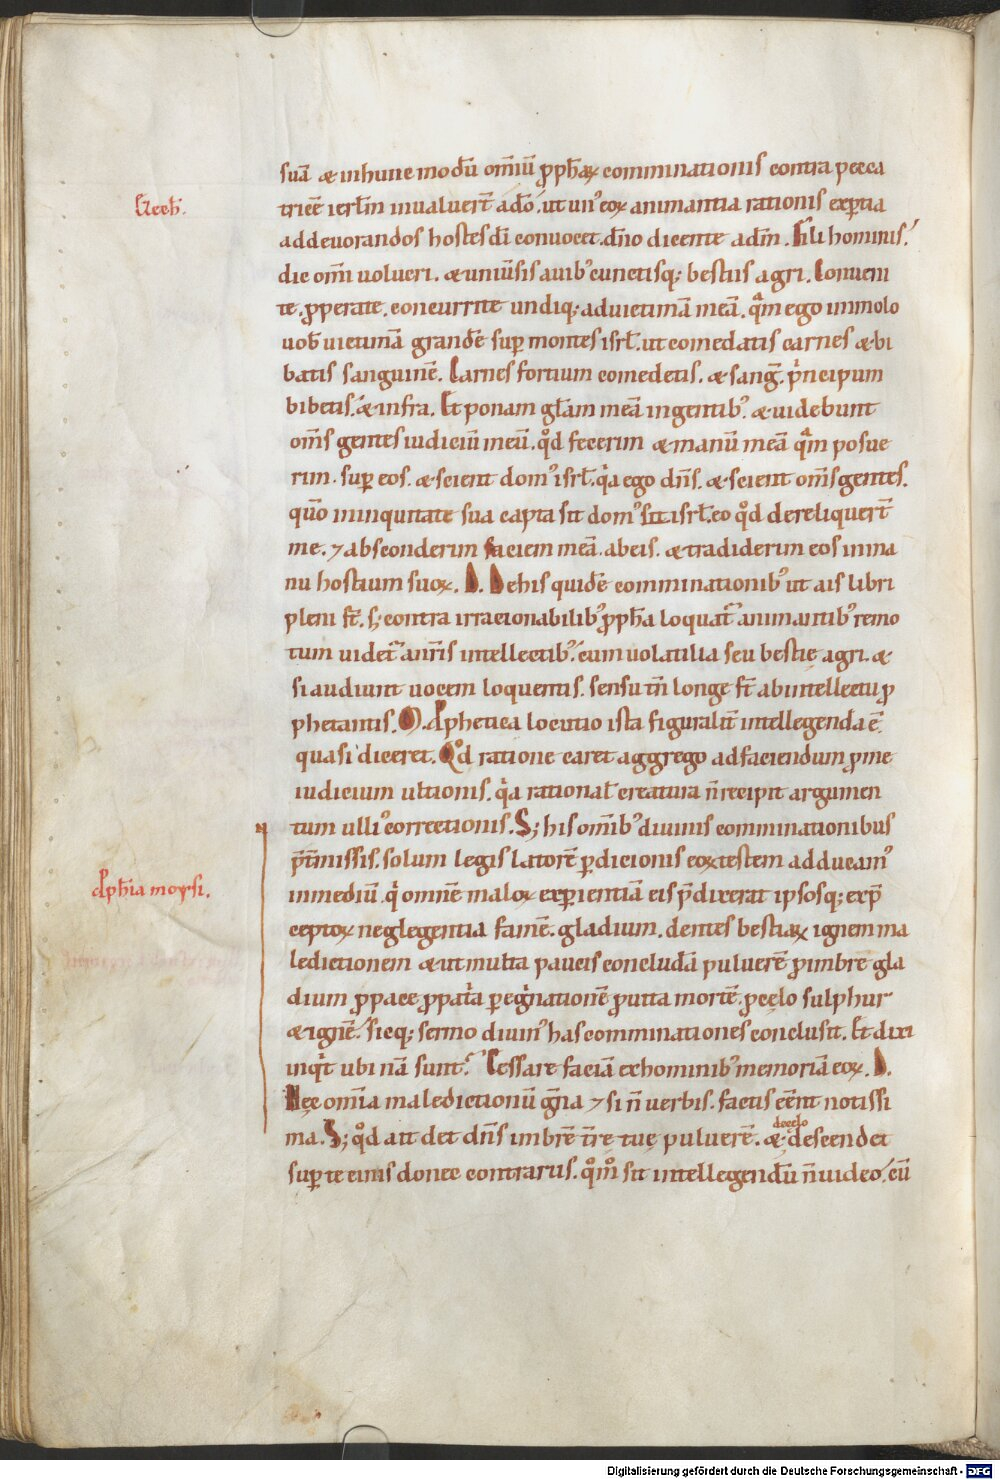 suā & inhunc modū om̄iū p̱pħaꝝ comminationis contra pecca
Ezech̄.
tricē ierłm inualuert̄ adō. ut un᾽ eoꝝ animantia rationis exp̱tia
addeuorandos hostes dī conuocet. dn̄o dicente adm̄. Fili hominis.
dic om̄i uolucri. & uniūsis auib᾽ cunctisq; bestiis agri. Conueni
te. p̱perate. concurrite undiq; aduictimā meā. qͣm ego immolo
uob̄ uictimā grandē sup̱ montes isrł. ut comedatis carnes & bi
batis sanguinē. Carnes fortium comedetis. & sanḡ. pͥncipum
bibetis. & infra. Et ponam głam meā ingentib᾽. & uidebunt
om̄s gentes iudiciū meū. qͦd fecerim & manū meā qͣm posue
rim. sup̱ eos. & scient dom᾽ isrł. qͥa ego dn̄s. & scient om̄s gentes.
qūo ininiquitate sua capta sit dom᾽ isrł. eo qͦd dereliquert̄
me. ⁊ absconderim faciem meā abeis. & tradiderim eos inma
nu hostium suoꝝ. D. Dehis quidē comminationib᾽ ut ais libri
pleni st̄. s; contra irracionabilib᾽ p̱pħa loquat᷒ animantib᾽ remo
tum uidet᷒ anr̄is intellectib᾽. cum uolatilia seu bestię agri. &
si audiunt uocem loquentis. sensu tn̄ longe st̄ abintellectu p̱
phetantis. O. P̱phetica locutio ista figuralit̄ intellegenda ē.
quasi diceret. Qͦd ratione caret aggrego adfaciendum p̱ me
iudicium ultionis. qͥa rational̄ creatura n̄ recipit argumen
tum ulli᾽ correctionis. S; his om̄ib᾽ diuinis comminationibus
p̄missis. solum legis latorē p̱dicionis eoꝝ testem adducam᾽
P̱pħia moysi.
inmediū. qͥ omnē maloꝝ exp̱ientiā eis p̄dixerat ipsosq; exp̄
ceptoꝝ neglegentia famē. gladium. dentes bestiaꝝ ignem ma
ledictionem & ut multa paucis concludā puluerē p̱imbrē gla
dium p̱pace p̱patͥa p̱egͥnationē p̱uita mortē. p̱cęlo sulphur
& ignē. Sicq; sermo diuin᾽ has comminationes conclusit. Et dixi
inqͥt ubi nā sunt? Cessare faciā exhominib᾽ memoriā eoꝝ. D.
Nec om̄ia maledictionū gn̄a ⁊ si n̄ uerbis. factis cēnt notissi
ma. S; qͦd ait det dn̄s imbrē tr̄e tuę puluerē. & decęlo descendet
sup̱ te cinis donec contrarus. qͦmͦ sit intellegendū n̄ uideo. cū